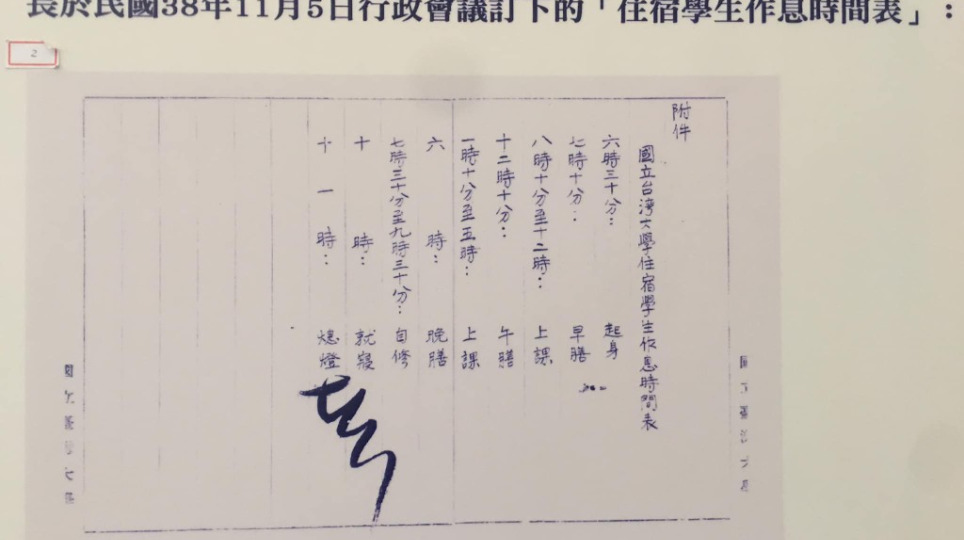 長於民國38年11月5日行政會議訂下的「住宿學生作息時間表」：
2
附件
國立台灣大學住宿學生作息時間表
六時三十分：起身
七時十分：早膳
八時十分至十二時：上課
十二時十分：午膳
一時十分至五時：上課
六時：晚膳
七時三十分至九時三十分：自修
十時：就寢
十一時：熄燈